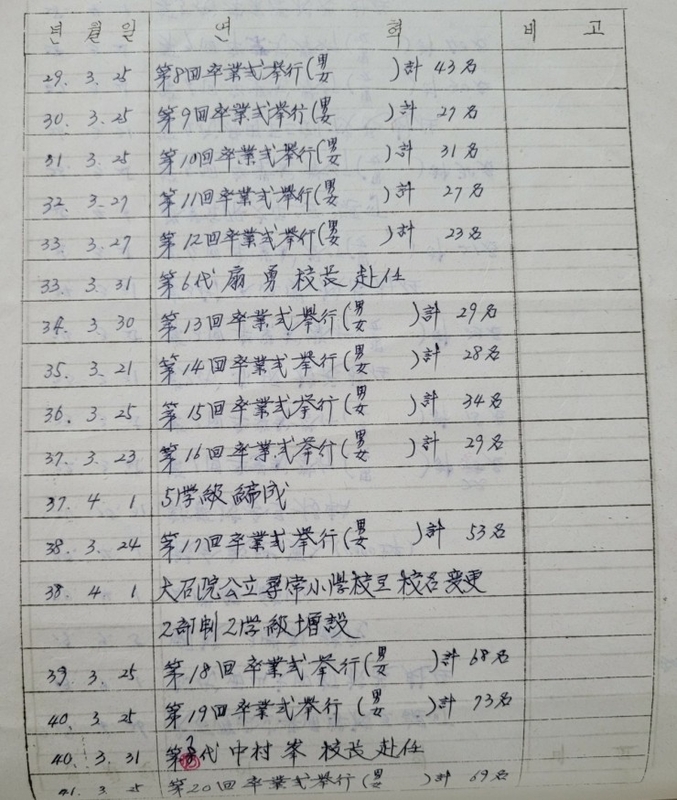 년 월 일 연 혁 비 고
29. 3. 25 第8回卒業式擧行(男女 )計 43名
30. 3. 25 第9回卒業式擧行(男女 )計 27名
31. 3. 25 第10回卒業式擧行(男女 )計 31名
32. 3. 27 第11回卒業式擧行(男女 )計 27名
33. 3. 27 第12回卒業式擧行(男女 )計 23名
33. 3. 31 第6代 扇 勇 校長 赴任
34. 3. 30 第13回卒業式擧行(男女 )計 29名
35. 3. 21 第14回卒業式擧行(男女 )計 28名
36. 3. 25 第15回卒業式擧行(男女 )計 34名
37. 3. 23 第16回卒業式擧行(男女 )計 29名
37. 4 1 5学級 編成
38. 3. 24 第17回卒業式擧行(男女 )計 53名
38. 4 1 大石院公立尋常小学校로 校名變更
2部制 2学級增設
39. 3. 25 第18回卒業式擧行(男女 )計 68名
40. 3. 25 第19回卒業式擧行(男女 )計 73名
40. 3. 31 第 代 中村 峯 校長 赴任
41. 3. 25 第20回卒業式擧行(男女 )計 69名